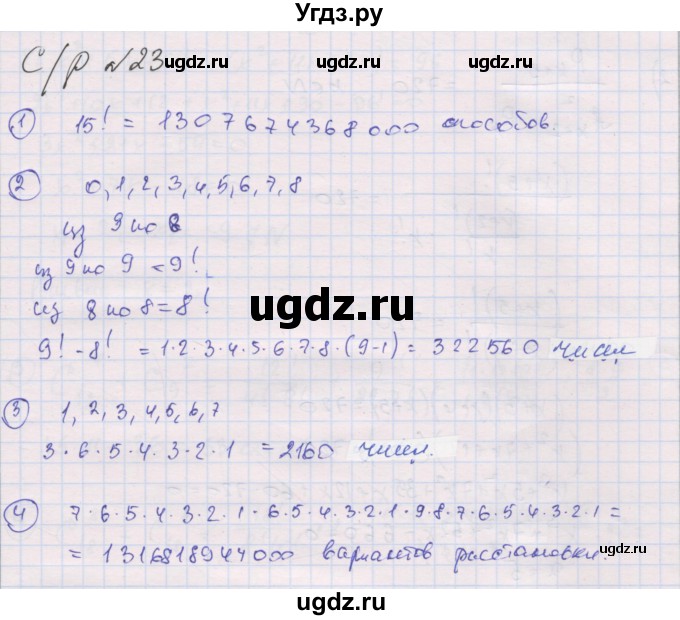 Угдз.ру
С/р №23
ugdz.ru ugdz.ru ugdz.ru
① 15! = 1307674368000 способов.
② 0,1,2,3,4,5,6,7,8
ugdz.ru ugdz.ru
из 9 по 8
из 9 по 9 = 9!
ugdz.ru
из 8 по 8 = 8!
9! - 8! = 1·2·3·4·5·6·7·8·(9-1) = 322560 чисел
ugdz.ru ugdz.ru
③ 1,2,3,4,5,6,7
3·6·5·4·3·2·1 = 2160 чисел.
ugdz.ru ugdz.ru ugdz.ru
④ 7·6·5·4·3·2·1·6·5·4·3·2·1·9·8·7·6·5·4·3·2·1 =
= 1316818944000 вариантов расстановки.
ugdz.ru ugdz.ru
ugdz.ru